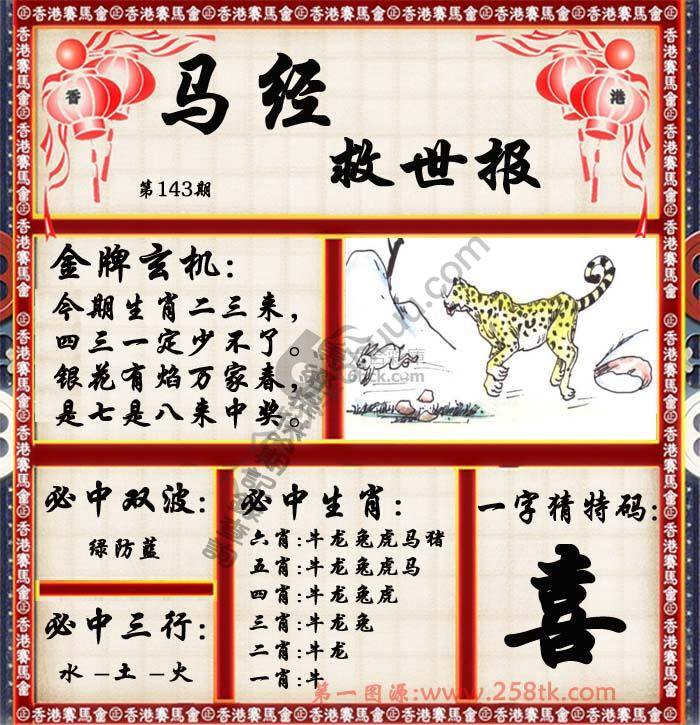 香港賽馬會
香
港
马经
救世报
第143期
金牌玄机:
今期生肖二三来,
四三一定少不了。
银花有焰万家春,
是七是八来中奖。
必中双波:
绿防蓝
必中三行:
水–土–火
必中生肖:
六肖:牛龙兔虎马猪
五肖:牛龙兔虎马
四肖:牛龙兔虎
三肖:牛龙兔
二肖:牛龙
一肖:牛
一字猜特码:
喜
第一图源:www.258tk.com